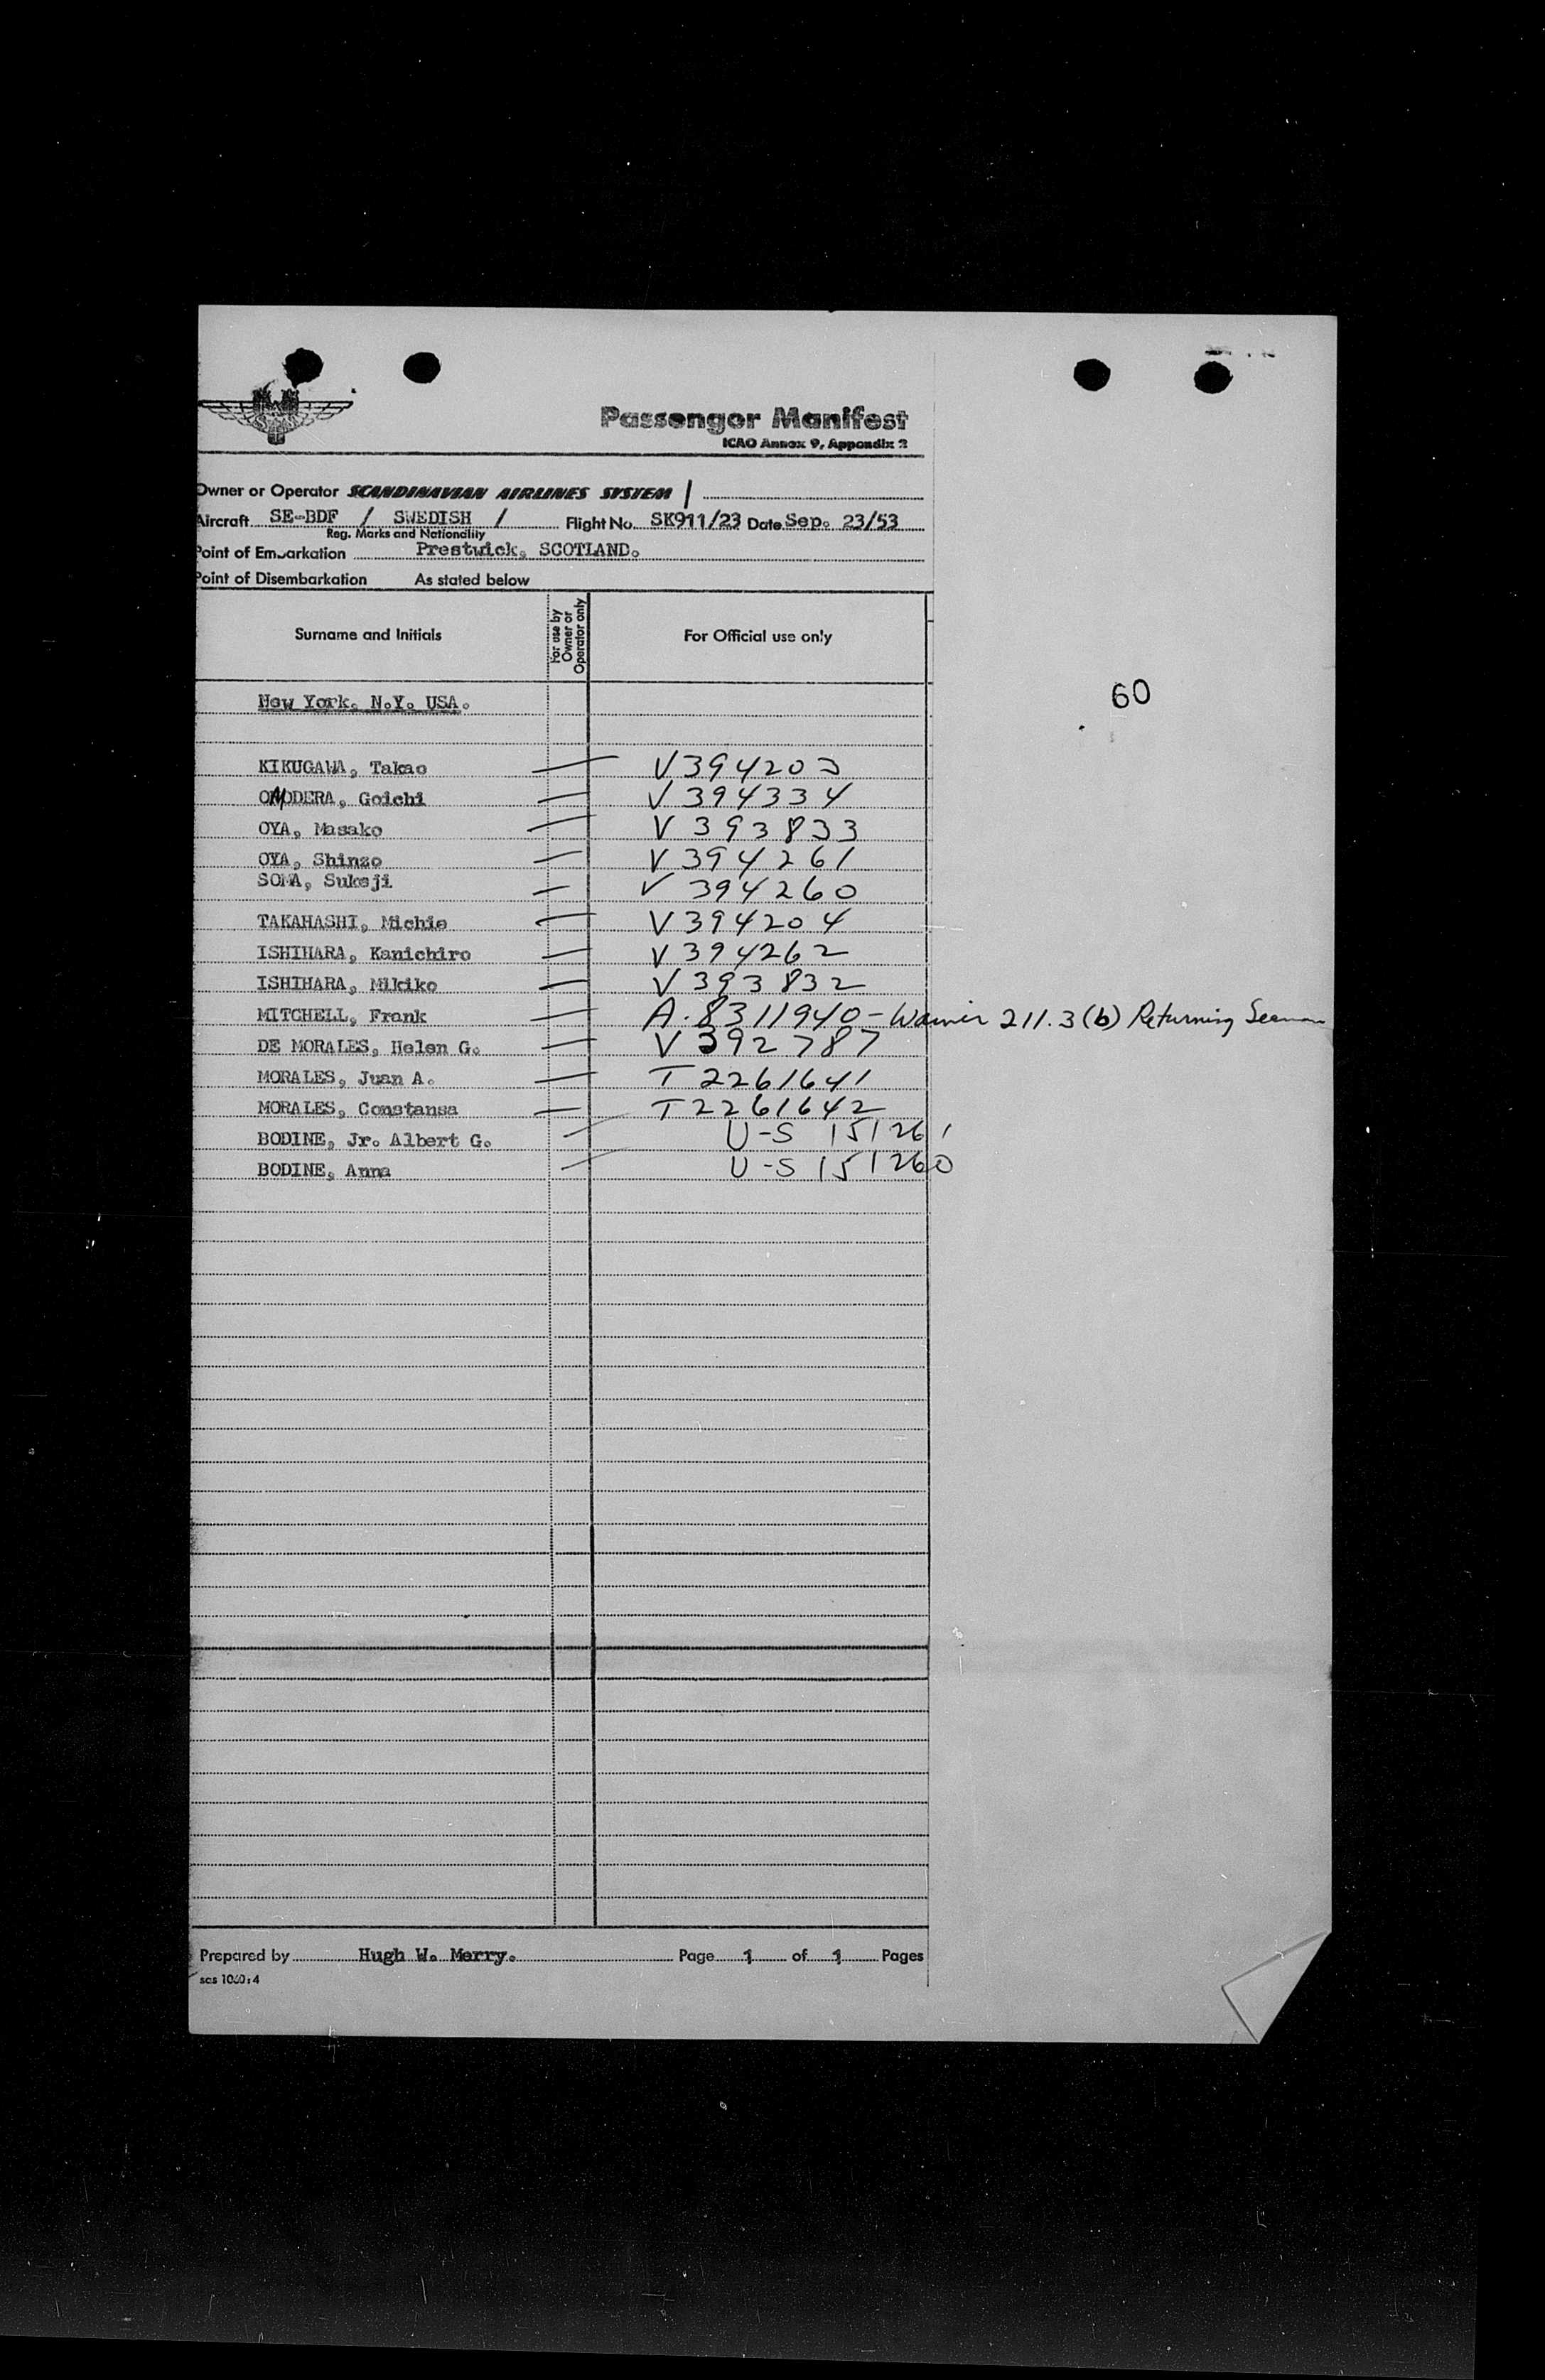 SAS
Passenger Manifest
ICAO Annex 9, Appendix 2
Owner or Operator SCANDINAVIAN AIRLINES SYSTEM /
Aircraft SE-BDF / SWEDISH / Flight No. SK911/23 Date Sep. 23/53
Reg. Marks and Nationality
Point of Embarkation Prestwick, SCOTLAND.
Point of Disembarkation As stated below
Surname and Initials For use by Owner or Operator only For Official use only
New York. N.Y. USA.
60
KIKUGAWA, Takao — V394203
ONODERA, Goichi — V394334
OYA, Masako — V393833
OYA, Shinzo — V394261
SOMA, Sukeji — V394260
TAKAHASHI, Michie — V394204
ISHIHARA, Kanichiro — V394262
ISHIHARA, Mikiko — V393832
MITCHELL, Frank — A.8311940 - Waiver 211.3(b) Returning Seaman
DE MORALES, Helen G. — V392787
MORALES, Juan A. — T2261641
MORALES, Constansa — T2261642
BODINE, Jr. Albert G. — U-S 151261
BODINE, Anna — U-S 151260
Prepared by Hugh W. Merry. Page 1 of 1 Pages
scs 1060:4